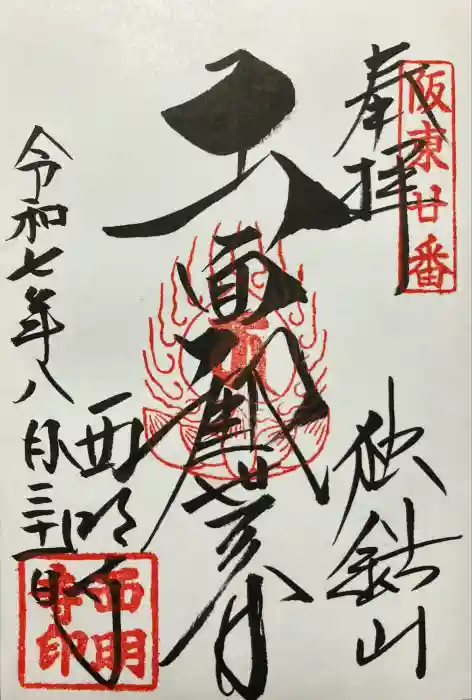 阪東廿番
奉拝
独鈷山
十一面観世音
西明寺
令和七年八月三十一日
西明
寺印